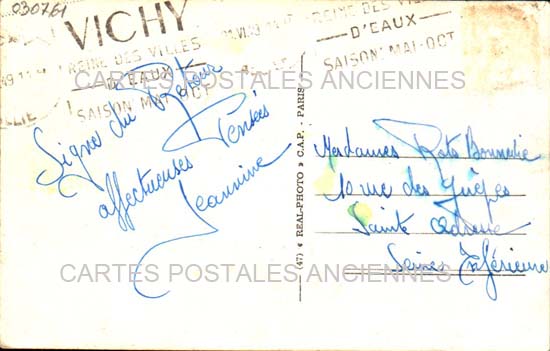 030761
VICHY
REINE DES VILLES
D'EAUX
SAISON MAI-OCT
REINE DES VILLES
D'EAUX
SAISON: MAI-OCT
CARTES POSTALES ANCIENNES
Signe du Retour
affectueuses Pensées
Jeannine
(47) « REAL-PHOTO » C.A.P. - PARIS
Mesdames Roto Bonnelie
10 rue des
Sainte Adresse
Seine Inférieure
CARTES POSTALES ANCIENNES